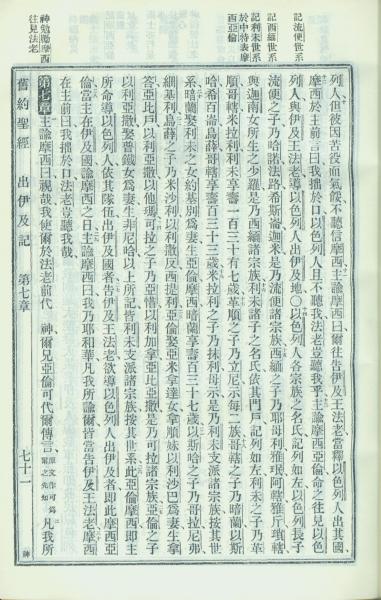 記流便世系
記西緬世系
記利未世系
於中特表摩
西亞倫
神勉勵摩西
往見法老
列人、但彼因苦役而氣餒、不聽信摩西、主諭摩西曰、爾往告伊及王法老、當釋以色列人出其國、
摩西於主前言曰、我拙於口、以色列人且不聽我、法老豈聽我乎、主諭摩西亞倫、命之往見以色
列人、與伊及王法老、導以色列人出伊及地、○以色列人各宗族之名氏、記列如左、以色列長子
流便之子、乃哈諾法路希斯崙迦米、是乃流便諸宗族、西緬之子、乃耶母利雅珉阿轄雅斤瑣轄、
與迦南女所生之少羅、是乃西緬諸宗族、利未諸子之名氏、依其門戶記列如左、利未之子、乃革
順哥轄米拉利、利未享壽一百三十有七歲、革順之子、乃立尼示每二族、哥轄之子、乃暗蘭以斯
哈希百崙烏薛、哥轄享壽百三十三歲、米拉利之子、乃抹利母示、是乃利未支派諸宗族、按其世
系、暗蘭娶利未之女約基別爲妻、生亞倫摩西、暗蘭享壽百三十七歲、以斯哈之子、乃哥拉尼弗
細基利、烏薛之子、乃米沙利以利撒反西提利、亞倫娶亞米拿達女拿順妹以利沙巴爲妻、生拿
答亞比戶以利亞撒以他瑪、可拉之子、乃亞惜以利加拿亞比亞撒、是乃可拉諸宗族、亞倫之子
以利亞撒、娶普鐵女爲妻、生非尼哈、以上所記、皆利未支派諸宗族、按其世系、此亞倫摩西、即主
所命導以色列人依其隊伍出伊及國者、告伊及王法老、欲導以色列人出伊及者、即此摩西亞
倫、當主在伊及國諭摩西之日、主諭摩西曰、我乃耶和華、凡我所諭爾、皆當告伊及王法老、摩西
在主前曰、我拙於口、法老豈聽我哉、
第七章 主諭摩西曰、視哉、我使爾於法老前代 神、爾兄亞倫可代爾傳言、原文作可爲爾之先知 凡我所
舊約聖經 出伊及記 第七章 七十一